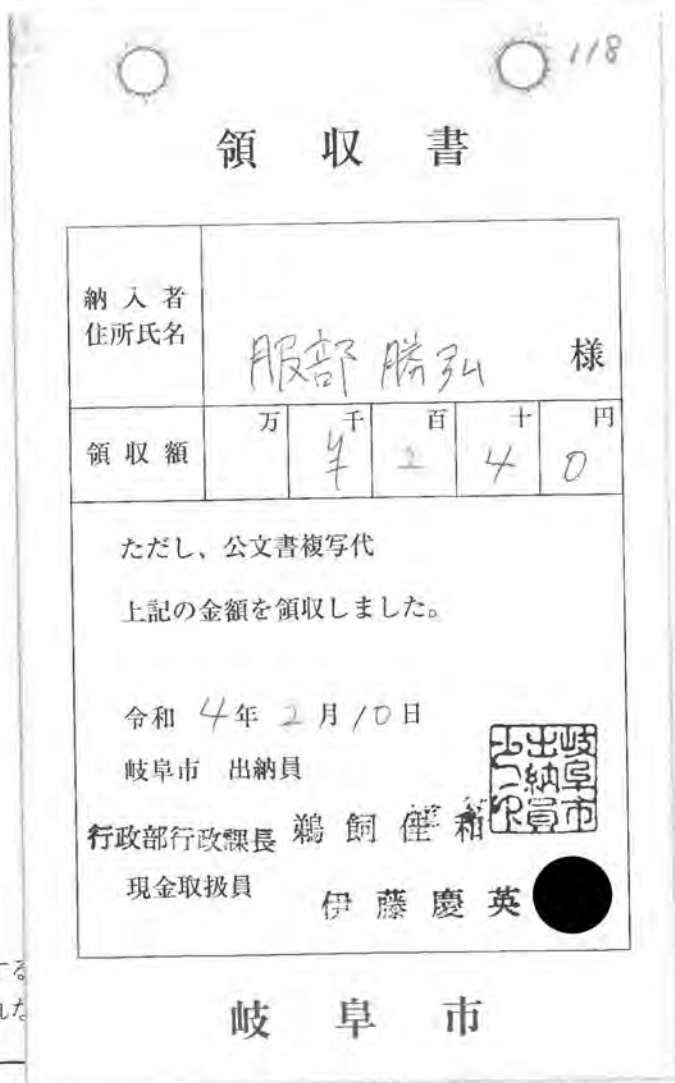 118
領収書
納入者
住所氏名
服部 勝弘 様
領収額
万 千 百 十 円
¥ 2 4 0
ただし、公文書複写代
上記の金額を領収しました。
令和 4年 2月10日
岐阜市 出納員
岐阜市
出納員
行政部行政課長 鵜飼 和
現金取扱員 伊藤慶英
岐阜市
する
れな